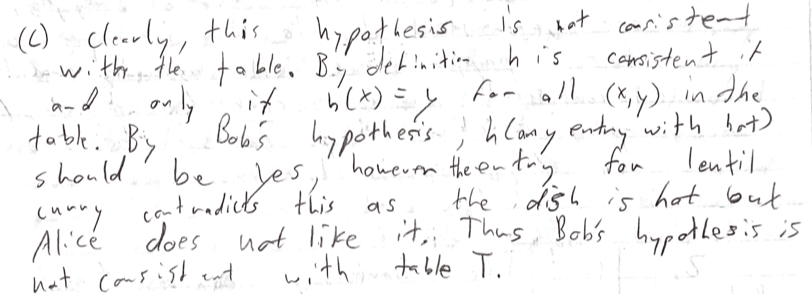 (c) Clearly, this hypothesis is not consistent
with the table. By definition h is consistent if
and only if h(x) = y for all (x,y) in the
table. By Bob's hypothesis, h(any entry with hot)
should be yes, however the entry for lentil
curry contradicts this as the dish is hot but
Alice does not like it. Thus Bob's hypothesis is
not consistent with table T.